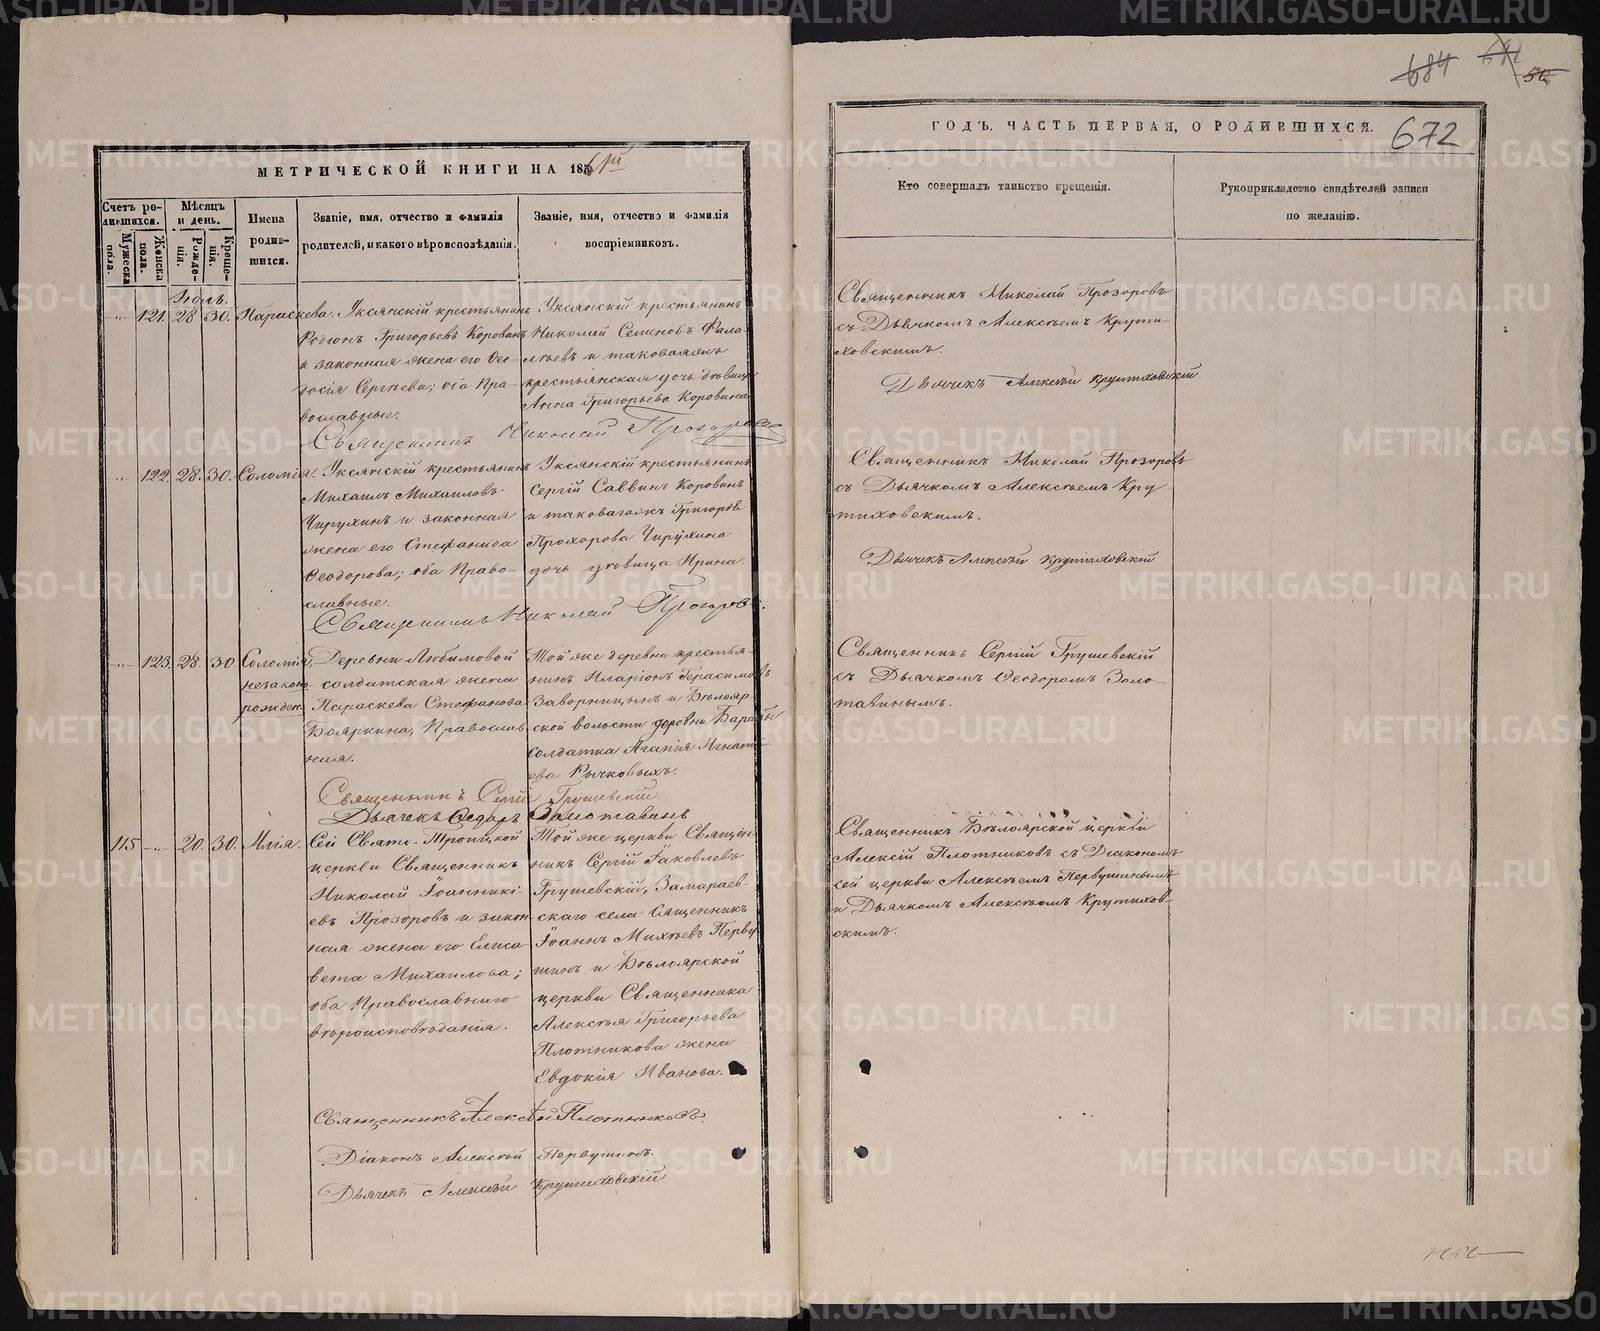 МЕТРИЧЕСКОЙ КНИГИ НА 1861й
Счетъ родившихся.
Мужеска пола.
Женска пола.
Мѣсяцъ и день.
Рожденія.
Крещенія.
Имена родившихся.
Званіе, имя, отчество и фамилія родителей, и какого вѣроисповѣданія.
Званіе, имя, отчество и фамилія воспріемниковъ.
Іюль.
121. 28 30. Параскева.
Уксянскій крестьянинъ
Родіонъ Григорьевъ Коровинъ
и законная жена его Ѳео-
досія Сергѣева; оба Пра-
вославные.
Уксянскій крестьянинъ
Николай Семеновъ Фала-
лѣевъ и таковаяжъ
крестьянская дочь дѣвица
Анна Григорьева Коровина
Священникъ Николай Прозоровъ
122. 28. 30. Соломія.
Уксянскій крестьянинъ
Михаилъ Михаиловъ
Чирухинъ и законная
жена его Стефанида
Ѳеодорова; оба Право-
славные.
Уксянскій крестьянинъ
Сергій Саввинъ Коровинъ
и таковагожъ Григорія
Прохорова Чирухина
дочь дѣвица Ирина
Священникъ Николай Прозоровъ.
123. 28. 30. Соломія,
незаконо-
рожден.
Деревни Любимовой
солдатская жена
Параскева Стефанова
Бояркина, Православ-
ная.
Той же деревни крестья-
нинъ Иларіонъ Герасимовъ
Заворницынъ и Бѣлояр-
ской волости деревни
солдатка Агапія Игнать-
ева Рычковыхъ.
Священникъ Сергій Грушевскій
Дьячекъ Ѳедоръ Золотавинъ
115 20. 30. Илія.
Сей Свято-Троицкой
церкви Священникъ
Николай Іоанникі-
евъ Прозоровъ и закон-
ная жена его Елиса-
вета Михаилова;
оба Православнаго
вѣроисповѣданія.
Той же церкви Священ-
никъ Сергій Іаковлевъ
Грушевскій, Замараев-
скаго села Священникъ
Іоаннъ Михѣевъ Перву-
шинъ и Бѣлоярской
церкви Священника
Алексѣя Григорьева
Плотникова жена
Евдокія Иванова.
Священникъ Алексѣй Плотниковъ.
Діаконъ Алексѣй Первушинъ.
Дьячекъ Алексѣй Крутиховскій
684
672
ГОДЪ, ЧАСТЬ ПЕРВАЯ, О РОДИВШИХСЯ.
Кто совершалъ таинство крещенія.
Рукоприкладство свидѣтелей записи
по желанію.
Священникъ Николай Прозоровъ
съ Дьячкомъ Алексѣемъ Крути-
ховскимъ.
Дьячекъ Алексѣй Крутиховскій
Священникъ Николай Прозоровъ
съ Дьячкомъ Алексѣемъ Кру-
тиховскимъ.
Дьячекъ Алексѣй Крутиховскій
Священникъ Сергій Грушевскій
съ Дьячкомъ Ѳеодоромъ Золо-
тавинымъ.
Священникъ Бѣлоярской церкви
Алексій Плотниковъ съ Діакономъ
сей церкви Алексѣемъ Первушинымъ
и Дьячкомъ Алексѣемъ Крутихов-
скимъ.
METRIKI.GASO-URAL.RU